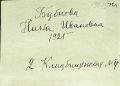 Бубнова
Нина Ивановна
1925
2 Кладбищенская